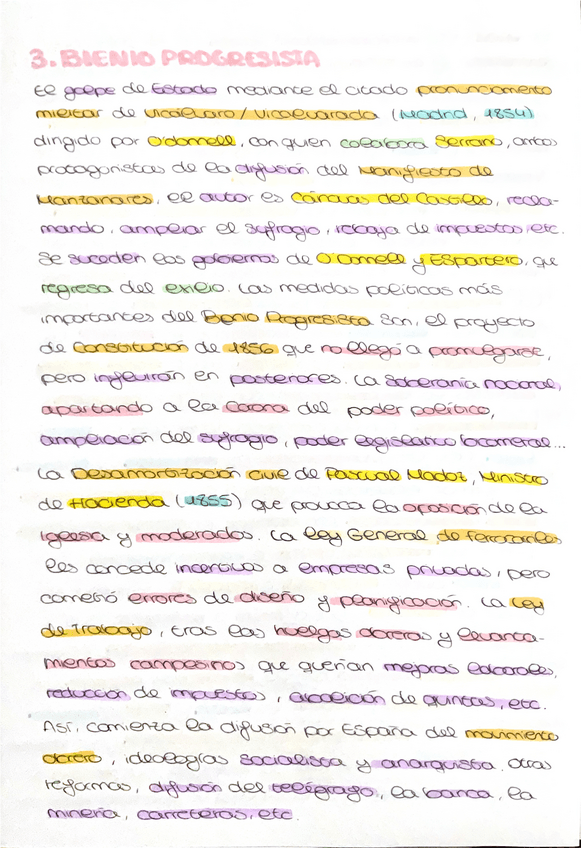 3. BIENIO PROGRESISTA
El golpe de Estado mediante el citado pronunciamiento
militar de Vicálvaro / Vicalvarada (Madrid, 1854)
dirigido por O'donnell, con quien colabora Serrano, ambos
protagonistas de la difusión del Manifiesto de
Manzanares, el autor es Cánovas del Castillo, recla-
mando, ampliar el sufragio, rebaja de impuestos, etc.
Se suceden los gobiernos de O'Donnell y Espartero, que
regresa del exilio. Las medidas políticas más
importantes del Bienio Progresista son, el proyecto
de Constitución de 1856 que no llegó a promulgarse,
pero influirán en posteriores. La Soberanía nacional,
apartando a la Corona del poder político,
ampliación del sufragio, poder legislativo bicameral...
La Desamortización civil de Pascual Madoz, Ministro
de Hacienda (1855) que provoca la oposición de la
Iglesia y moderados. La Ley General de ferrocarriles
les concede incentivos a empresas privadas, pero
cometió errores de diseño y planificación. La Ley
de Trabajo, tras las huelgas obreras y levanta-
mientos campesinos que querían mejoras laborales,
reducción de impuestos, abolición de quintas, etc.
Así, comienza la difusión por España del movimiento
obrero, ideologías socialista y anarquista. Otras
reformas, difusión del telégrafo, la banca, la
minería, carreteras, etc.